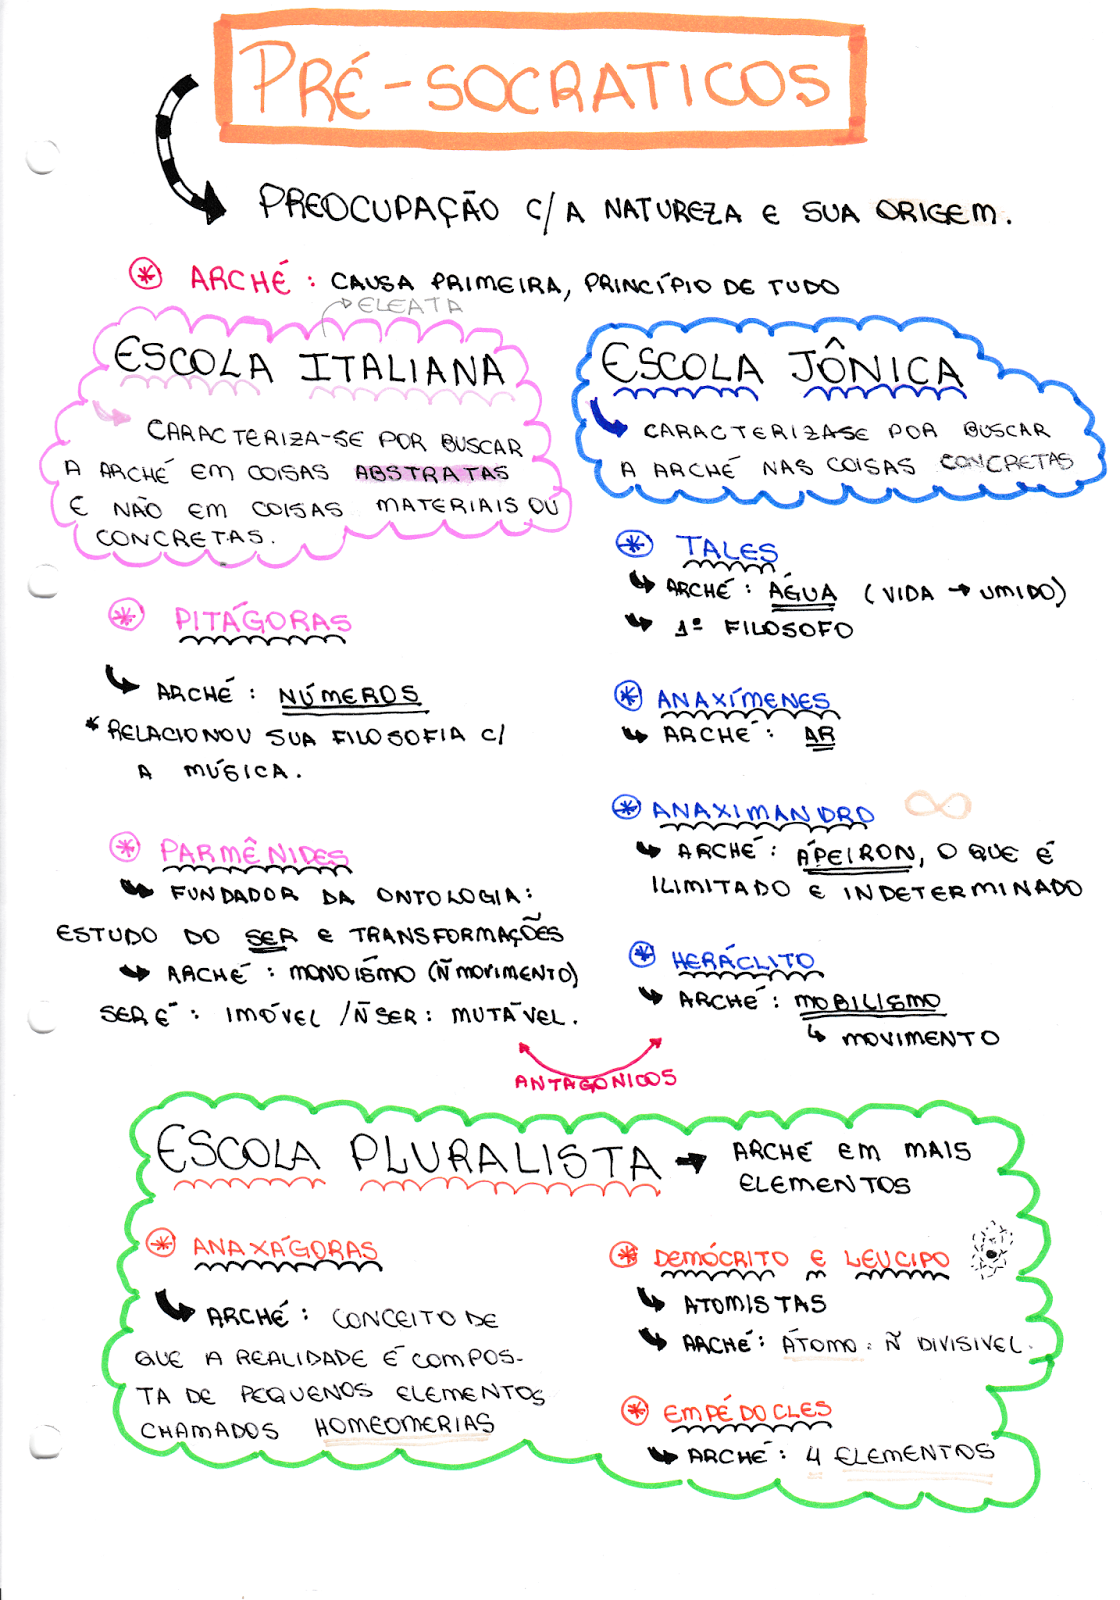 PRÉ-SOCRATICOS
PREOCUPAÇÃO C/ A NATUREZA E SUA ORIGEM.
ARCHÉ: CAUSA PRIMEIRA, PRINCÍPIO DE TUDO
ELEATA
ESCOLA ITALIANA
CARACTERIZA-SE POR BUSCAR
A ARCHÉ EM COISAS ABSTRATAS
E NÃO EM COISAS MATERIAIS OU
CONCRETAS.
PITÁGORAS
ARCHÉ: NÚMEROS
* RELACIONOU SUA FILOSOFIA C/
A MÚSICA.
PARMÊNIDES
FUNDADOR DA ONTOLOGIA:
ESTUDO DO SER E TRANSFORMAÇÕES
ARCHÉ: MONOÍSMO (Ñ MOVIMENTO)
SER É: IMÓVEL / Ñ SER: MUTÁVEL.
ESCOLA JÔNICA
CARACTERIZASE POR BUSCAR
A ARCHÉ NAS COISAS CONCRETAS
TALES
ARCHÉ: ÁGUA (VIDA → UMIDO)
1º FILOSOFO
ANAXÍMENES
ARCHÉ: AR
ANAXIMANDRO ∞
ARCHÉ: ÁPEIRON, O QUE É
ILIMITADO E INDETERMINADO
HERÁCLITO
ARCHÉ: MOBILISMO
MOVIMENTO
ANTAGONICOS
ESCOLA PLURALISTA → ARCHÉ EM MAIS
ELEMENTOS
ANAXÁGORAS
ARCHÉ: CONCEITO DE
QUE A REALIDADE É COMPOS-
TA DE PEQUENOS ELEMENTOS
CHAMADOS HOMEOMERIAS
DEMÓCRITO E LEUCIPO
ATOMISTAS
ARCHÉ: ÁTOMO: Ñ DIVISIVEL.
EMPÉDOCLES
ARCHÉ: 4 ELEMENTOS